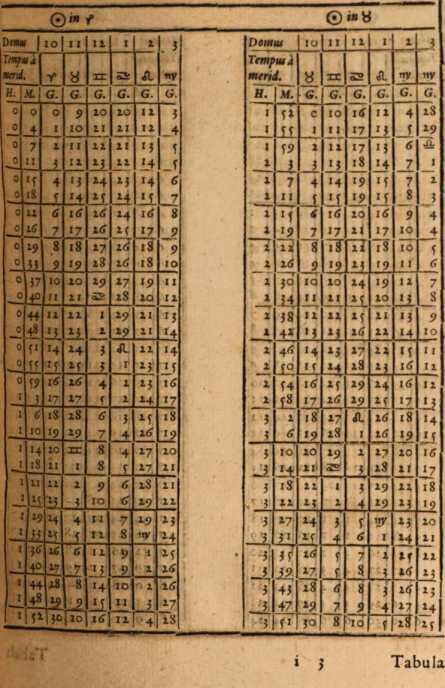 ☉ in ♈
Domus 10 11 12 1 2 3
Tempus à
merid. ♈ ♉ ♊ ♋ ♌ ♍
H. M. G. G. G. G. G. G.
0 0 0 9 20 20 12 3
0 4 1 10 21 21 12 4
0 7 2 11 22 21 13 5
0 11 3 12 23 22 14 5
0 15 4 13 24 23 14 6
0 18 5 14 25 24 15 7
0 22 6 16 26 24 16 8
0 26 7 17 26 25 17 9
0 29 8 18 27 26 18 9
0 33 9 19 28 26 18 10
0 37 10 20 29 27 19 11
0 40 11 21 ♋ 28 20 12
0 44 12 22 1 29 21 13
0 48 13 23 2 29 21 14
0 51 14 24 3 ♌ 22 14
0 55 15 25 3 1 23 15
0 59 16 26 4 2 23 16
1 3 17 27 5 2 24 17
1 6 18 28 6 3 25 18
1 10 19 29 7 4 26 19
1 14 20 ♊ 8 4 27 20
1 18 21 1 8 5 27 21
1 21 22 2 9 6 28 21
1 25 23 3 10 6 29 22
1 29 24 4 11 7 29 23
1 33 25 5 12 8 ♍ 24
1 36 26 6 12 9 1 25
1 40 27 7 13 9 2 26
1 44 28 8 14 10 2 26
1 48 29 9 15 11 3 27
1 52 30 10 16 12 4 28
☉ in ♉
Domus 10 11 12 1 2 3
Tempus à
merid. ♉ ♊ ♋ ♌ ♍ ♍
H. M. G. G. G. G. G. G.
1 52 0 10 16 12 4 28
1 55 1 11 17 13 5 29
1 59 2 12 17 13 6 ♎
2 3 3 13 18 14 7 1
2 7 4 14 19 15 7 2
2 11 5 15 19 15 8 3
2 15 6 16 20 16 9 4
2 19 7 17 21 17 10 4
2 22 8 18 22 18 10 5
2 26 9 19 23 19 11 6
2 30 10 20 24 19 12 7
2 34 11 21 25 20 13 8
2 38 12 22 25 21 13 9
2 42 13 23 26 22 14 10
2 46 14 23 27 22 15 11
2 50 15 24 28 23 16 12
2 54 16 25 29 24 16 12
2 58 17 26 29 25 17 13
3 2 18 27 ♌ 26 18 14
3 6 19 28 1 26 19 15
3 10 20 29 2 27 20 16
3 14 21 ♋ 3 28 21 17
3 18 22 1 3 29 22 18
3 22 23 2 4 29 23 19
3 27 24 3 5 ♍ 23 20
3 31 25 4 6 1 24 21
3 35 26 5 7 2 25 22
3 39 27 5 8 3 26 23
3 43 28 6 8 3 26 23
3 47 29 7 9 4 27 24
3 51 30 8 10 5 28 25
i 3 Tabula